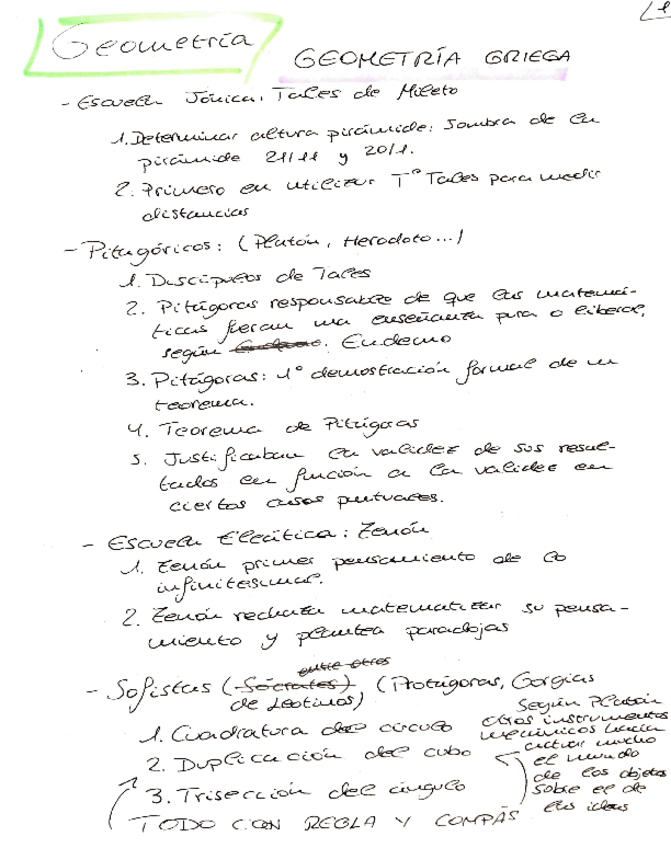 1
Geometría
GEOMETRÍA GRIEGA
- Escuela Jónica: Tales de Mileto
1. Determinar altura pirámide: Sombra de la
pirámide 21/11 y 20/1.
2. Primero en utilizar Tº Tales para medir
distancias
- Pitagóricos: (Platón, Herodoto...)
1. Discípulos de Tales
2. Pitágoras responsable de que las matemá-
ticas fueran una enseñanza pura o liberal,
según Eudemo
3. Pitágoras: 1º demostración formal de un
teorema.
4. Teorema de Pitágoras
5. Justificaban la validez de sus resul-
tados en función a la validez en
ciertos casos puntuales.
- Escuela Eleática: Zenón
1. Zenón primer pensamiento de lo
infinitesimal.
2. Zenón rechaza matematizar su pensa-
miento y plantea paradojas
entre otros
- Sofistas (Sócrates) (Protágoras, Gorgias
de Leotinos)
1. Cuadratura del círculo
2. Duplicación del cubo
3. Trisección del ángulo
TODO CON REGLA Y COMPÁS
Según Platón
otros instrumentos
mecánicos hacía
actuar mucho
el mundo
de los objetos
sobre el de
las ideas